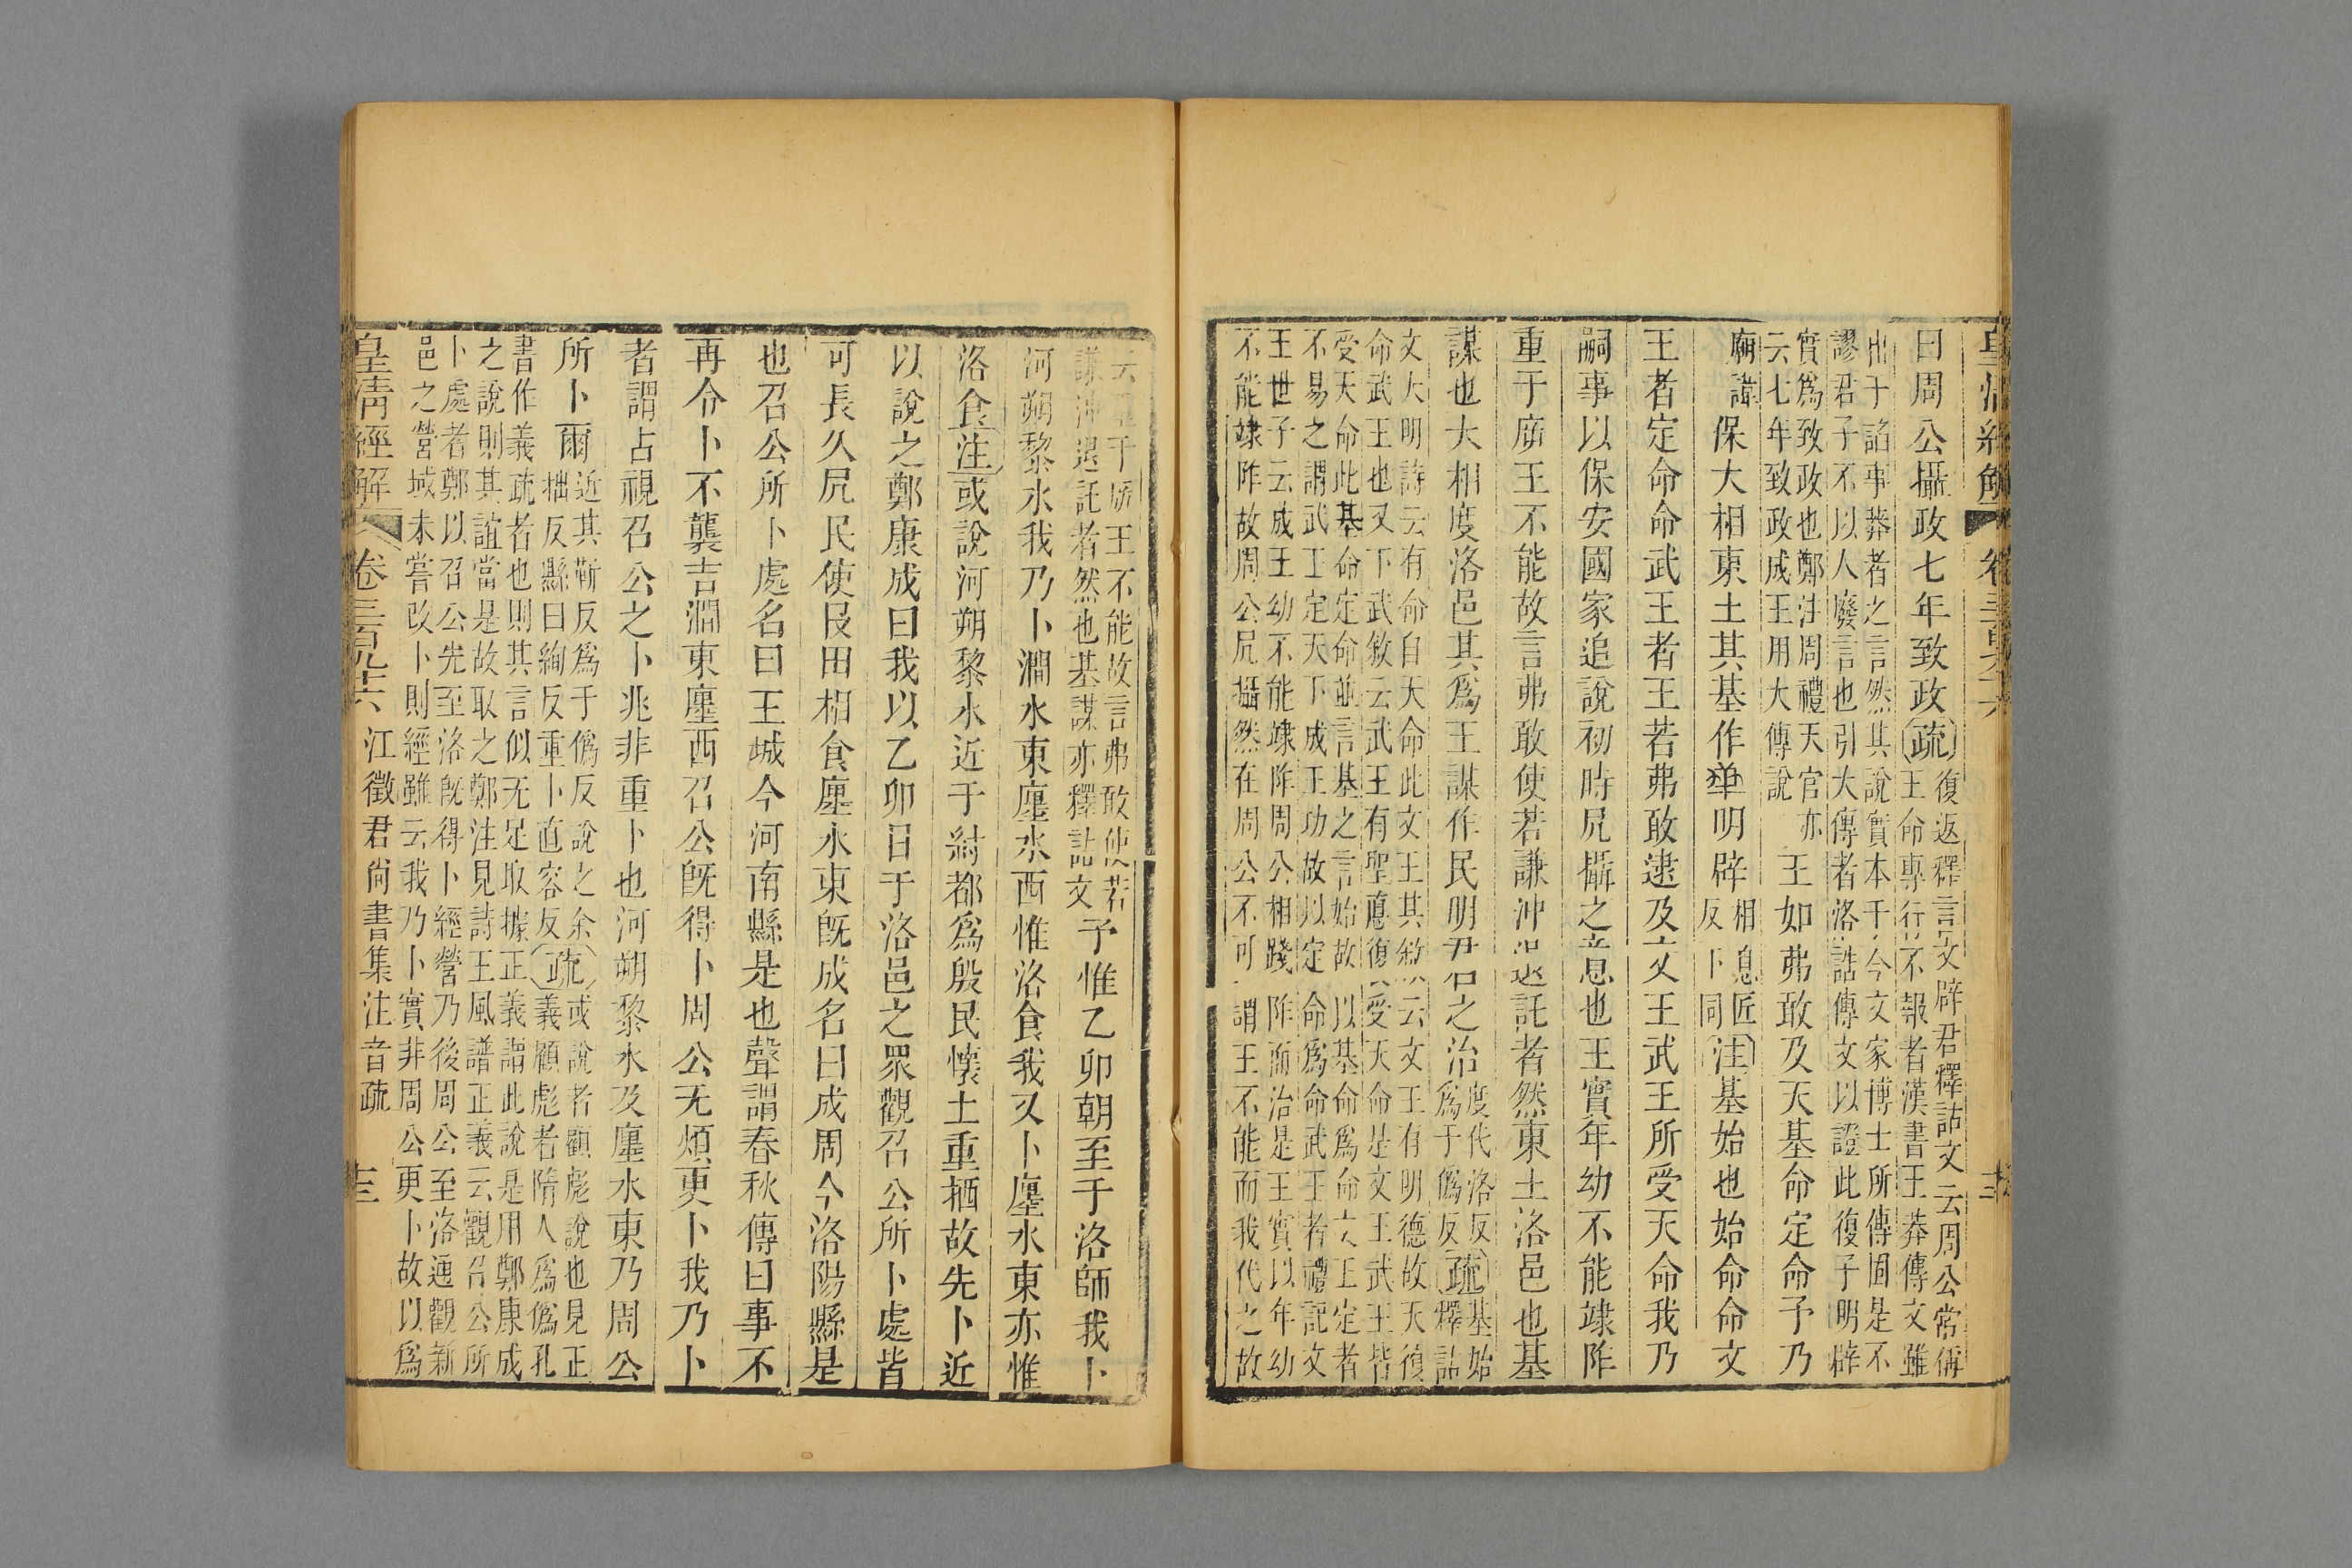 皇清經解
曰周公攝政七年致政疏復返釋言文辟君釋詁文云周公常偁
王命專行不報者漢書王莽傳文雖
出于諂事莽者之言然其說實本于今文家博士所傳固是不
謬君子不以人廢言也引大傳者洛誥傳文以證此復子明辟
實爲致政也鄭注周禮天官亦
云七年致政成王用大傳說
王如弗敢及天基命定命予乃
廟諱保大相東土其基作
明辟相息匠反下同注基始也始命命文
王者定命命武王者王若弗敢逮及文王武王所受天命我乃
嗣事以保安國家追說初時凥攝之意也王實年幼不能竦阼
重于庴王不能故言弗敢使若謙沖退託者然東土洛邑也基
謀也大相度洛邑其爲王謀作民明君之治度代洛反
爲于僞反疏基始
釋詁
文大明詩云有命自天命此文王其敘云文王有明德故天復
命武王也又下武敘云武王有聖德復受天命是文王武王皆
受天命此基命定命竝言基之言始故以基命爲命文王定者
不易之謂武王定天下成王功故以定命爲命武王者禮記文
王世子云成王幼不能竦阼周公相踐阼而治是王實以年幼
不能竦阼故周公凥攝然在周公不可謂王不能而我代之故
云于庴王不能故言弗敢使若
謙沖退託者然也基謀亦釋詁文
予惟乙卯朝至于洛師我卜
河朔黎水我乃卜澗水東廛水西惟洛食我又卜廛水東亦惟
洛食注或說河朔黎水近于紂都爲殷民懷土重栖故先卜近
以說之鄭康成曰我以乙卯日于洛邑之眾觀召公所卜處皆
可長久凥民使服田相食廛水東旣成名曰成周今洛陽縣是
也召公所卜處名曰王城今河南縣是也聲謂春秋傳曰事不
再令卜不襲吉澗東廛西召公旣得卜周公无煩更卜我乃卜
者謂占視召公之卜兆非重卜也河朔黎水及廛水東乃周公
所卜爾近其靳反爲于僞反說之余
拙反縣曰絢反重卜直容反疏或說者顧彪說也見正
義顧彪者隋人爲僞孔
書作義疏者也則其言似无足取據正義謂此說是用鄭康成
之說則其誼當是故取之鄭注見詩王風譜正義云觀召公所
卜處者鄭以召公先至洛旣得卜經營乃後周公至洛通觀新
邑之營域未嘗改卜則經雖云我乃卜實非周公更卜故以爲
皇清經解 卷三百九十六 江徵君尙書集注音疏 十三